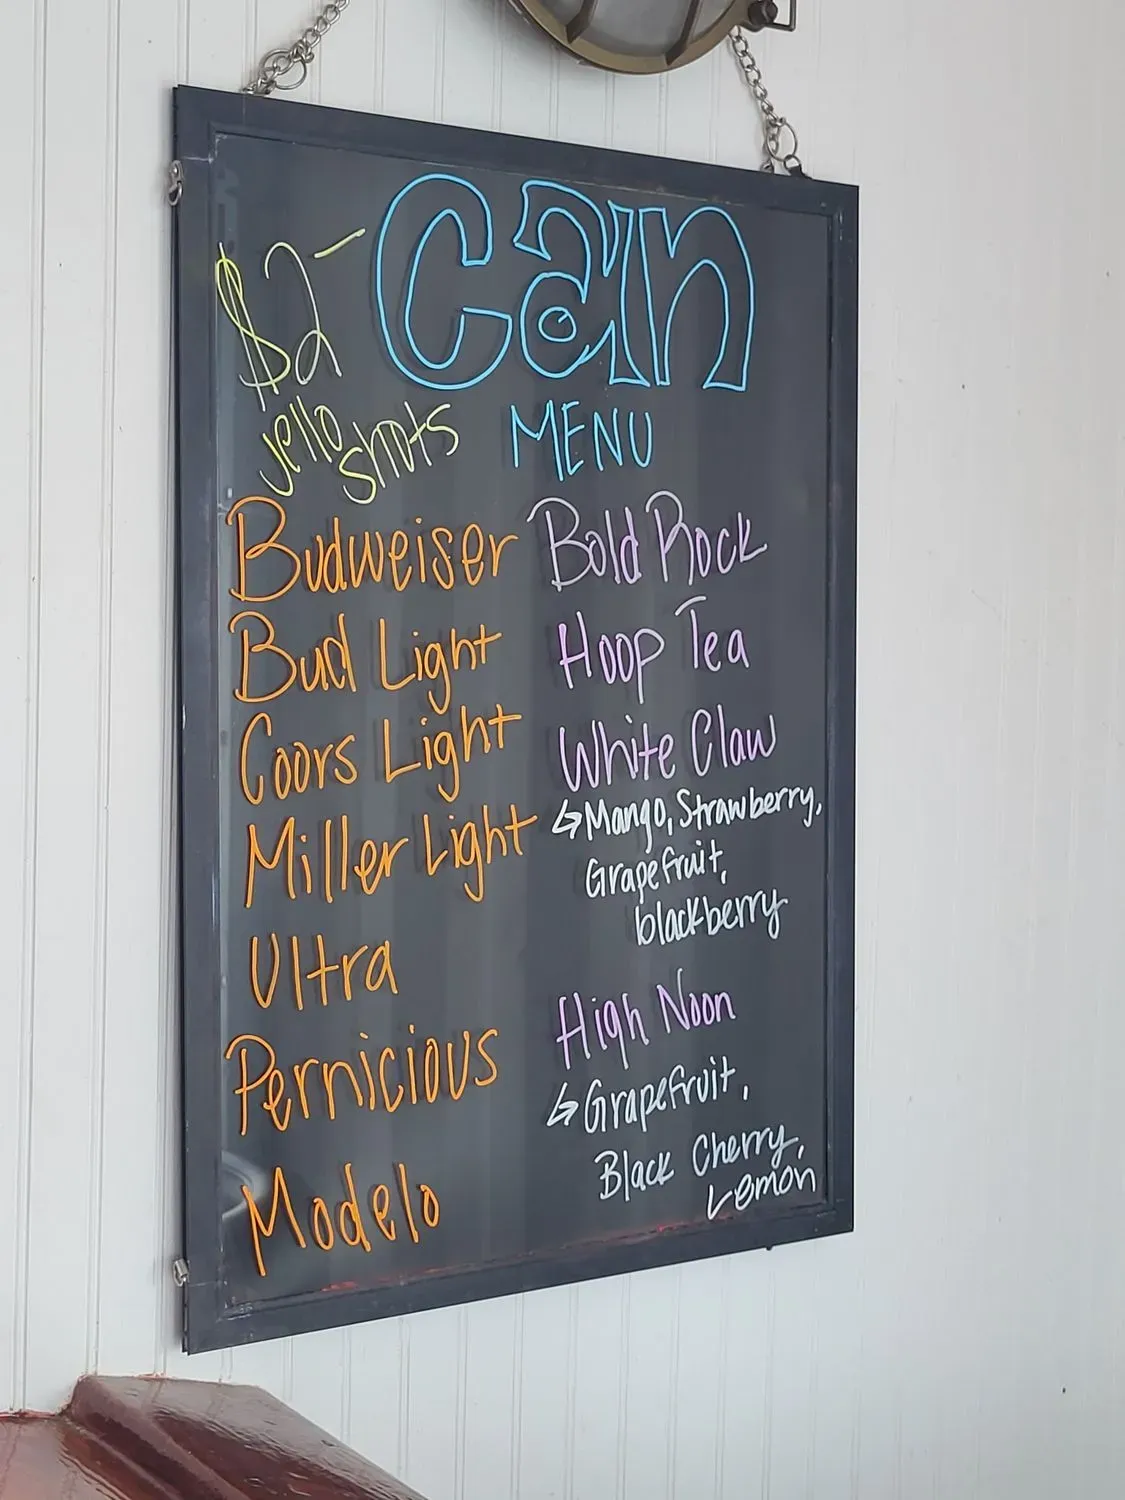 Can
$2-
jello
shots
MENU
Budweiser
Bud Light
Coors Light
Miller Light
Ultra
Pernicious
Modelo
Bold Rock
Hoop Tea
White Claw
↳Mango, Strawberry,
Grapefruit,
blackberry
High Noon
↳Grapefruit,
Black Cherry,
Lemon